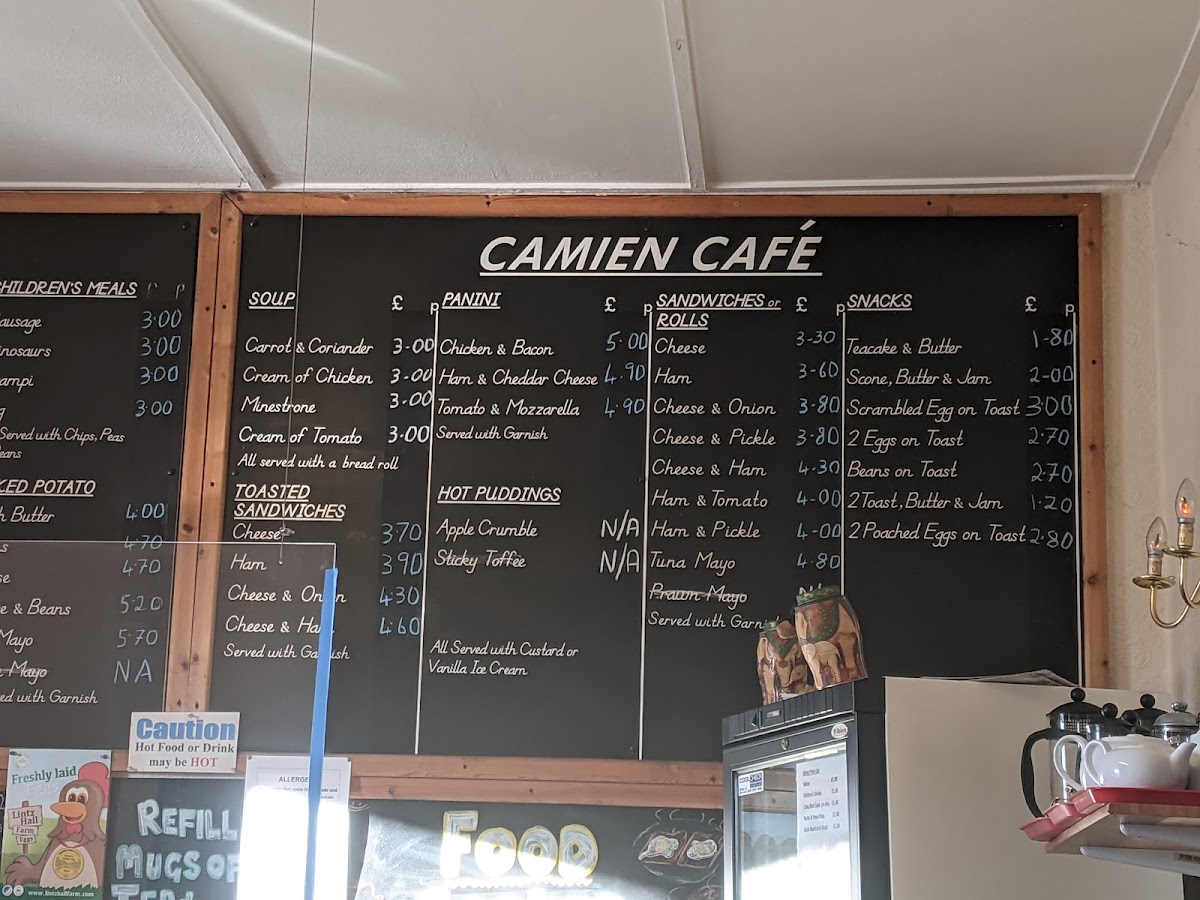 CAMIEN CAFÉ
CHILDREN'S MEALS p
3·00
3·00
3·00
3·00
Served with Chips, Peas
POTATO
Butter 4·00
4·70
4·70
& Beans 5·20
Mayo 5·70
Mayo NA
with Garnish
SOUP £ p
Carrot & Coriander 3·00
Cream of Chicken 3·00
Minestrone 3·00
Cream of Tomato 3·00
All served with a bread roll
TOASTED
SANDWICHES
Cheese 370
Ham 390
Cheese & Onion 4·30
Cheese & Ham 4·60
Served with Garnish
PANINI £ p
Chicken & Bacon 5·00
Ham & Cheddar Cheese 4.90
Tomato & Mozzarella 4.90
Served with Garnish
HOT PUDDINGS
Apple Crumble N/A
Sticky Toffee N/A
All Served with Custard or
Vanilla Ice Cream
SANDWICHES or £ p
ROLLS
Cheese 3-30
Ham 3-60
Cheese & Onion 3·80
Cheese & Pickle 3·80
Cheese & Ham 4·30
Ham & Tomato 4-00
Ham & Pickle 4-00
Tuna Mayo 4·80
Prawn Mayo
Served with
SNACKS £ p
Teacake & Butter 1-80
Scone, Butter & Jam 2-00
Scrambled Egg on Toast 3·00
2 Eggs on Toast 2.70
Beans on Toast 2·70
2 Toast, Butter & Jam 1·20
2 Poached Eggs on Toast 2·80
Caution
Hot Food or Drink
may be HOT
Freshly laid
Lintz
Hall
Farm
Eggs
www.lintzhallfarm.com
REFILL
MUGS OF
FOOD